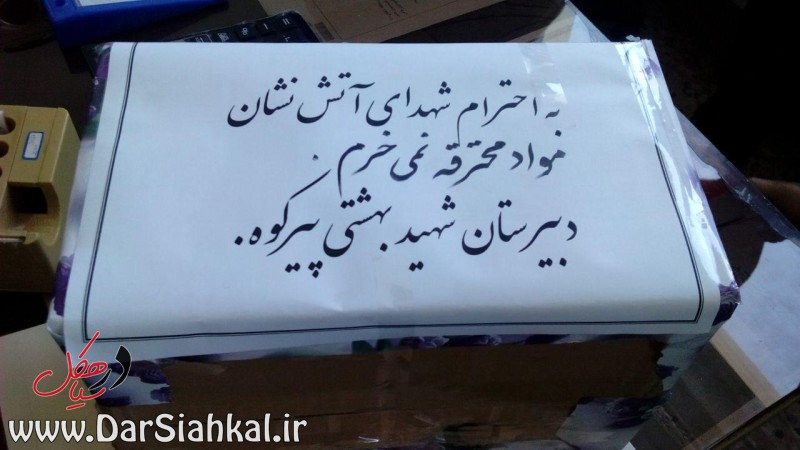 به احترام شهدای آتش نشان
مواد محترقه نمی خرم .
دبیرستان شهید بهشتی پیرکوه.
در سیاهکل
www.DarSiahkal.ir